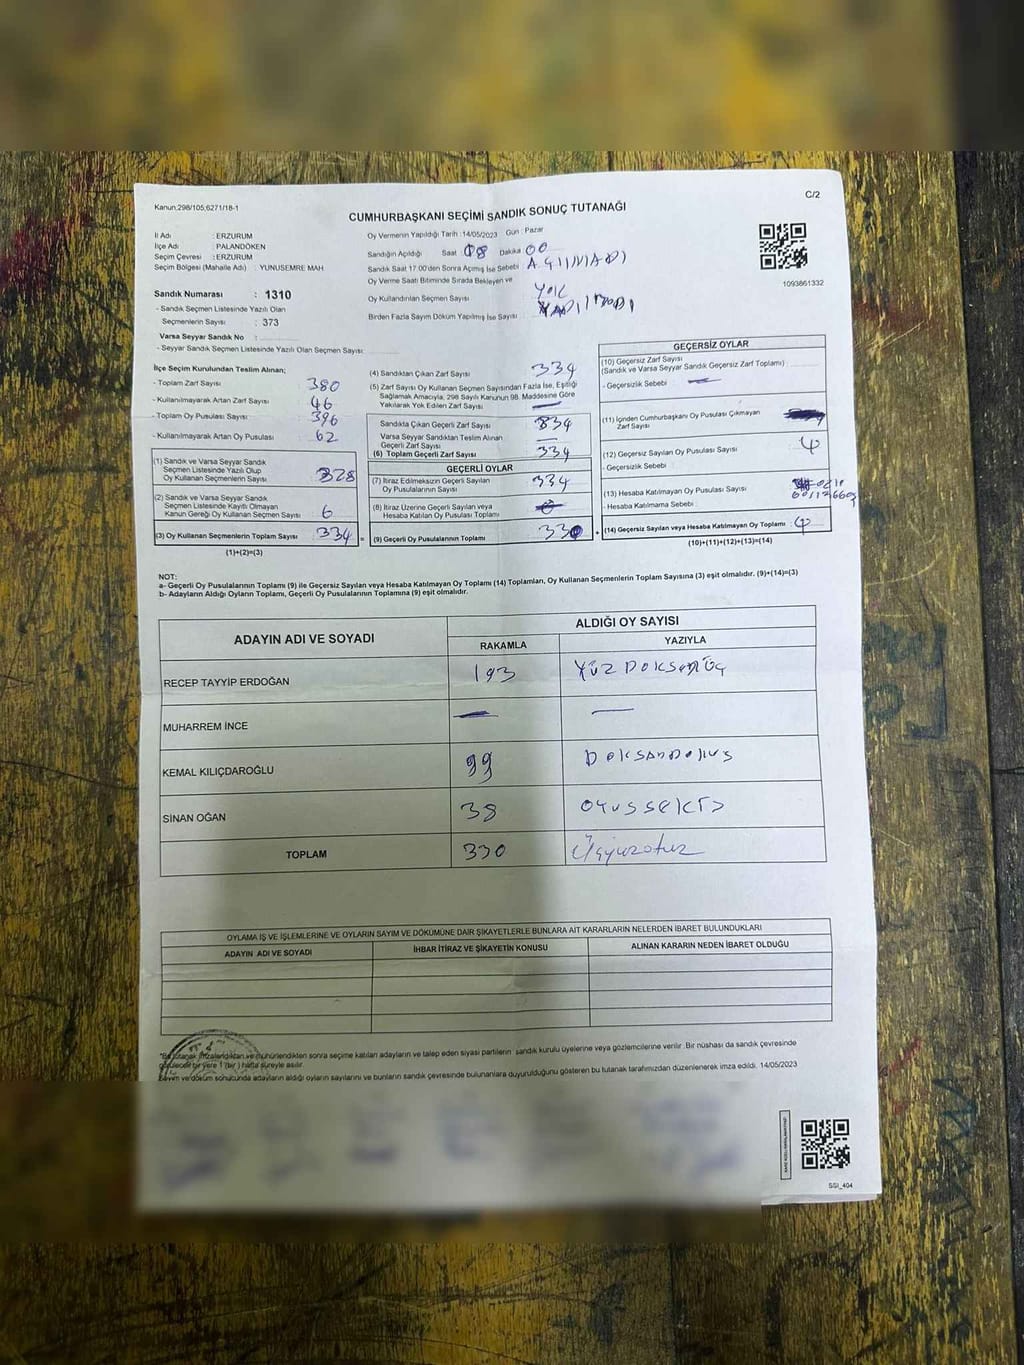 Kanun,298/105,6271/18-1
C/2
CUMHURBAŞKANI SEÇİMİ SANDIK SONUÇ TUTANAĞI
İl Adı : ERZURUM
İlçe Adı : PALANDÖKEN
Seçim Çevresi : ERZURUM
Seçim Bölgesi (Mahalle Adı) : YUNUSEMRE MAH
Oy Vermenin Yapıldığı Tarih : 14/05/2023 Gün : Pazar
Sandığın Açıldığı Saat 08 Dakika 00
Sandık Saat 17.00'den Sonra Açılmış İse Sebebi AÇILMADI
Oy Verme Saati Bitiminde Sırada Bekleyen ve
Oy Kullandırılan Seçmen Sayısı YOK
Birden Fazla Sayım Döküm Yapılmış İse Sayısı
1093861332
Sandık Numarası : 1310
- Sandık Seçmen Listesinde Yazılı Olan
Seçmenlerin Sayısı : 373
Varsa Seyyar Sandık No :
- Seyyar Sandık Seçmen Listesinde Yazılı Olan Seçmen Sayısı:
İlçe Seçim Kurulundan Teslim Alınan;
- Toplam Zarf Sayısı 380
- Kullanılmayarak Artan Zarf Sayısı 46
- Toplam Oy Pusulası Sayısı 396
- Kullanılmayarak Artan Oy Pusulası 62
(1) Sandık ve Varsa Seyyar Sandık
Seçmen Listesinde Yazılı Olup
Oy Kullanan Seçmen Sayısı 328
(2) Sandık ve Varsa Seyyar Sandık
Seçmen Listesinde Kayıtlı Olmayan
Kanun Gereği Oy Kullanan Seçmen Sayısı 6
(3) Oy Kullanan Seçmenlerin Toplam Sayısı 334
(1)+(2)=(3)
(4) Sandıktan Çıkan Zarf Sayısı 334
(5) Zarf Sayısı Oy Kullanan Seçmen Sayısından Fazla İse, Eşitliği
Sağlamak Amacıyla, 298 Sayılı Kanunun 98. Maddesine Göre
Yakılarak Yok Edilen Zarf Sayısı —
Sandıkta Çıkan Geçerli Zarf Sayısı 334
Varsa Seyyar Sandıktan Teslim Alınan
Geçerli Zarf Sayısı —
(6) Toplam Geçerli Zarf Sayısı 334
GEÇERLİ OYLAR
(7) İtiraz Edilmeksizin Geçerli Sayılan
Oy Pusulalarının Sayısı 334
(8) İtiraz Üzerine Geçerli Sayılan veya
Hesaba Katılan Oy Pusulası Toplamı
(9) Geçerli Oy Pusulalarının Toplamı 330
GEÇERSİZ OYLAR
(10) Geçersiz Zarf Sayısı
(Sandık ve Varsa Seyyar Sandık Geçersiz Zarf Toplamı) :
- Geçersizlik Sebebi —
(11) İçinden Cumhurbaşkanı Oy Pusulası Çıkmayan
Zarf Sayısı
(12) Geçersiz Sayılan Oy Pusulası Sayısı 4
- Geçersizlik Sebebi :
(13) Hesaba Katılmayan Oy Pusulası Sayısı
- Hesaba Katılmama Sebebi :
(14) Geçersiz Sayılan veya Hesaba Katılmayan Oy Toplamı : 4
(10)+(11)+(12)+(13)=(14)
NOT:
a- Geçerli Oy Pusulalarının Toplamı (9) ile Geçersiz Sayılan veya Hesaba Katılmayan Oy Toplamı (14) Toplamları, Oy Kullanan Seçmenlerin Toplam Sayısına (3) eşit olmalıdır. (9)+(14)=(3)
b- Adayların Aldığı Oyların Toplamı, Geçerli Oy Pusulalarının Toplamına (9) eşit olmalıdır.
ADAYIN ADI VE SOYADI
ALDIĞI OY SAYISI
RAKAMLA YAZIYLA
RECEP TAYYİP ERDOĞAN 193 YÜZ DOKSANÜÇ
MUHARREM İNCE — —
KEMAL KILIÇDAROĞLU 99 DOKSANDOKUS
SİNAN OĞAN 38 OTUSSEKİZ
TOPLAM 330 Üçyüzotuz
OYLAMA İŞ VE İŞLEMLERİNE VE OYLARIN SAYIM VE DÖKÜMÜNE DAİR ŞİKAYETLERLE BUNLARA AİT KARARLARIN NELERDEN İBARET BULUNDUKLARI
ADAYIN ADI VE SOYADI İHBAR İTİRAZ VE ŞİKAYETİN KONUSU ALINAN KARARIN NEDEN İBARET OLDUĞU
*Bu tutanak imzalandıktan ve mühürlendikten sonra seçime katılan adayların ve talep eden siyasi partilerin sandık kurulu üyelerine veya gözlemcilerine verilir. Bir nüshası da sandık çevresinde
görülecek bir yere 1 (bir) hafta süreyle asılır.
Sayım ve döküm sonucunda adayların aldığı oyların sayılarını ve bunların sandık çevresinde bulunanlara duyurulduğunu gösteren bu tutanak tarafımızdan düzenlenerek imza edildi. 14/05/2023
SSI_404